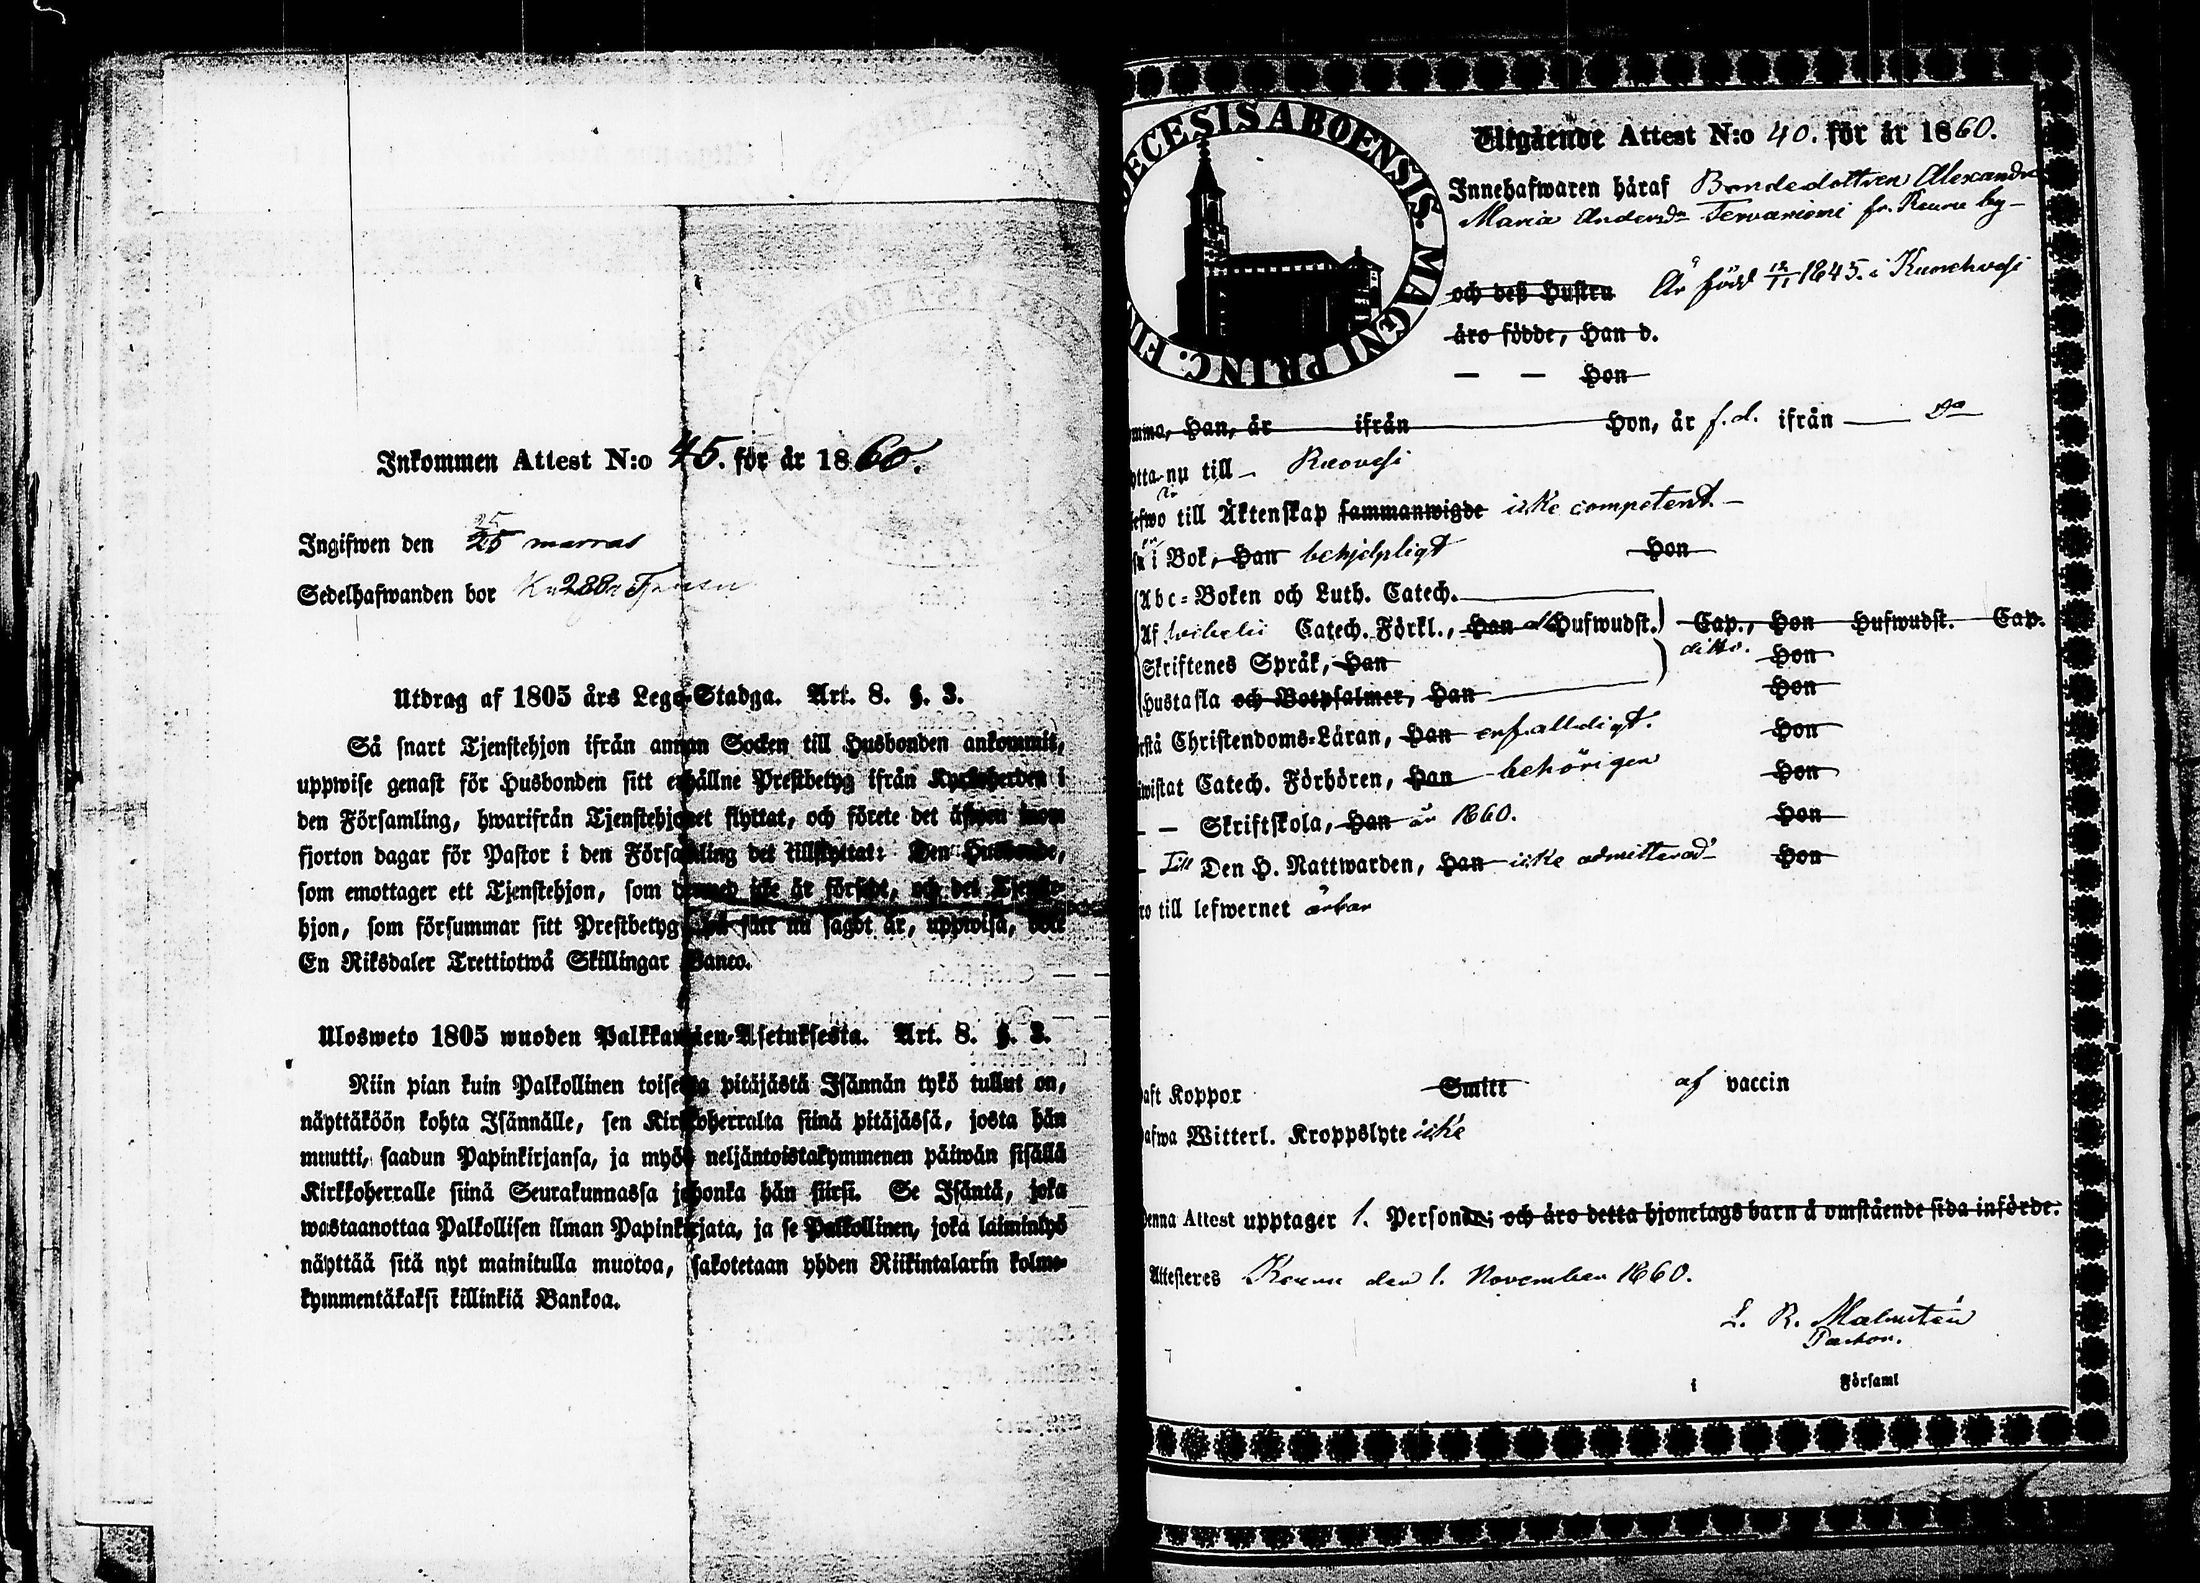 Inkommen Attest N:o 45. för år 1860.
Ingifwen den 25 marras
Sedelhafwanden bor
Utdrag af 1805 års Lego-Stadga. Art. 8. §. 3.
Så snart Tjenstehjon ifrån annan Socken till Husbonden ankommit,
uppwise genast för Husbonden sitt erhållne Prestbetyg ifrån Kyrkoherden i
den Församling, hwarifrån Tjenstehjonet flyttat, och förete det äfwen inom
fjorton dagar för Pastor i den Församling det tillflyttat: Den Husbonde,
som emottager ett Tjenstehjon, som dermed icke är försedt, och det Tjenste-
hjon, som försummar sitt Prestbetyg på sätt nu sagdt är, uppwisa, böte
En Riksdaler Trettiotwå Skillingar Banco.
Ulosweto 1805 wuoden Palkkawäen-Asetuksesta. Art. 8. §. 3.
Niin pian kuin Palkollinen toisesta pitäjästä Isännän tykö tullut on,
näyttäköön kohta Isännälle, sen Kirkkoherralta siinä pitäjässä, josta hän
muutti, saadun Papinkirjansa, ja myös neljäntoistakymmenen päiwän sisällä
Kirkkoherralle siinä Seurakunnassa johonka hän siirsi. Se Isäntä, joka
wastaanottaa Palkollisen ilman Papinkirjata, ja se Palkollinen, joka laiminlyö
näyttää sitä nyt mainitulla muotoa, sakotetaan yhden Riikintalarin kolme-
kymmentäkaksi killinkiä Bankoa.
DECESIS ABOENSIS. MAGNI PRINC. FIN
Utgående Attest N:o 40. för år 1860.
Innehafwaren häraf Bondedottren Alexandra
Maria Andersdr Tervaniemi fr. Keuru by
och deß Hustru Är född 12/11 1845. i
äro födde, Han d.
— — Hon
mma, Han, år ifrån Hon, år f.d. ifrån
ytta nu till Ruovesi
efwo till Äktenskap sammanwigde icke competent.
i Bok, Han behjelpligt Hon
Abc-Boken och Luth. Catech.
Af Catech. Förkl., Han Hufwudst. Cap., Hon Hufwudst. Cap.
Skriftenes Språk, Han ditto. Hon
Hustafla och Botpsalmer, Han Hon
rstå Christendoms-Läran, Han enfalldigt. Hon
iwistat Catech. Förhören, Han behörigen Hon
— — Skriftskola, Han år 1860. Hon
— Till Den H. Nattwarden, Han icke admitterad Hon
ro till lefwernet ärbar
aft Koppor Smitt af vaccin
afwa Witterl. Kroppslyte icke
enna Attest upptager 1. Personer; och äro detta hjonelags barn å omstående sida införde.
Attesteres Keuru den 1. November 1860.
L. R. Malmstén
Pastor.
i Församl